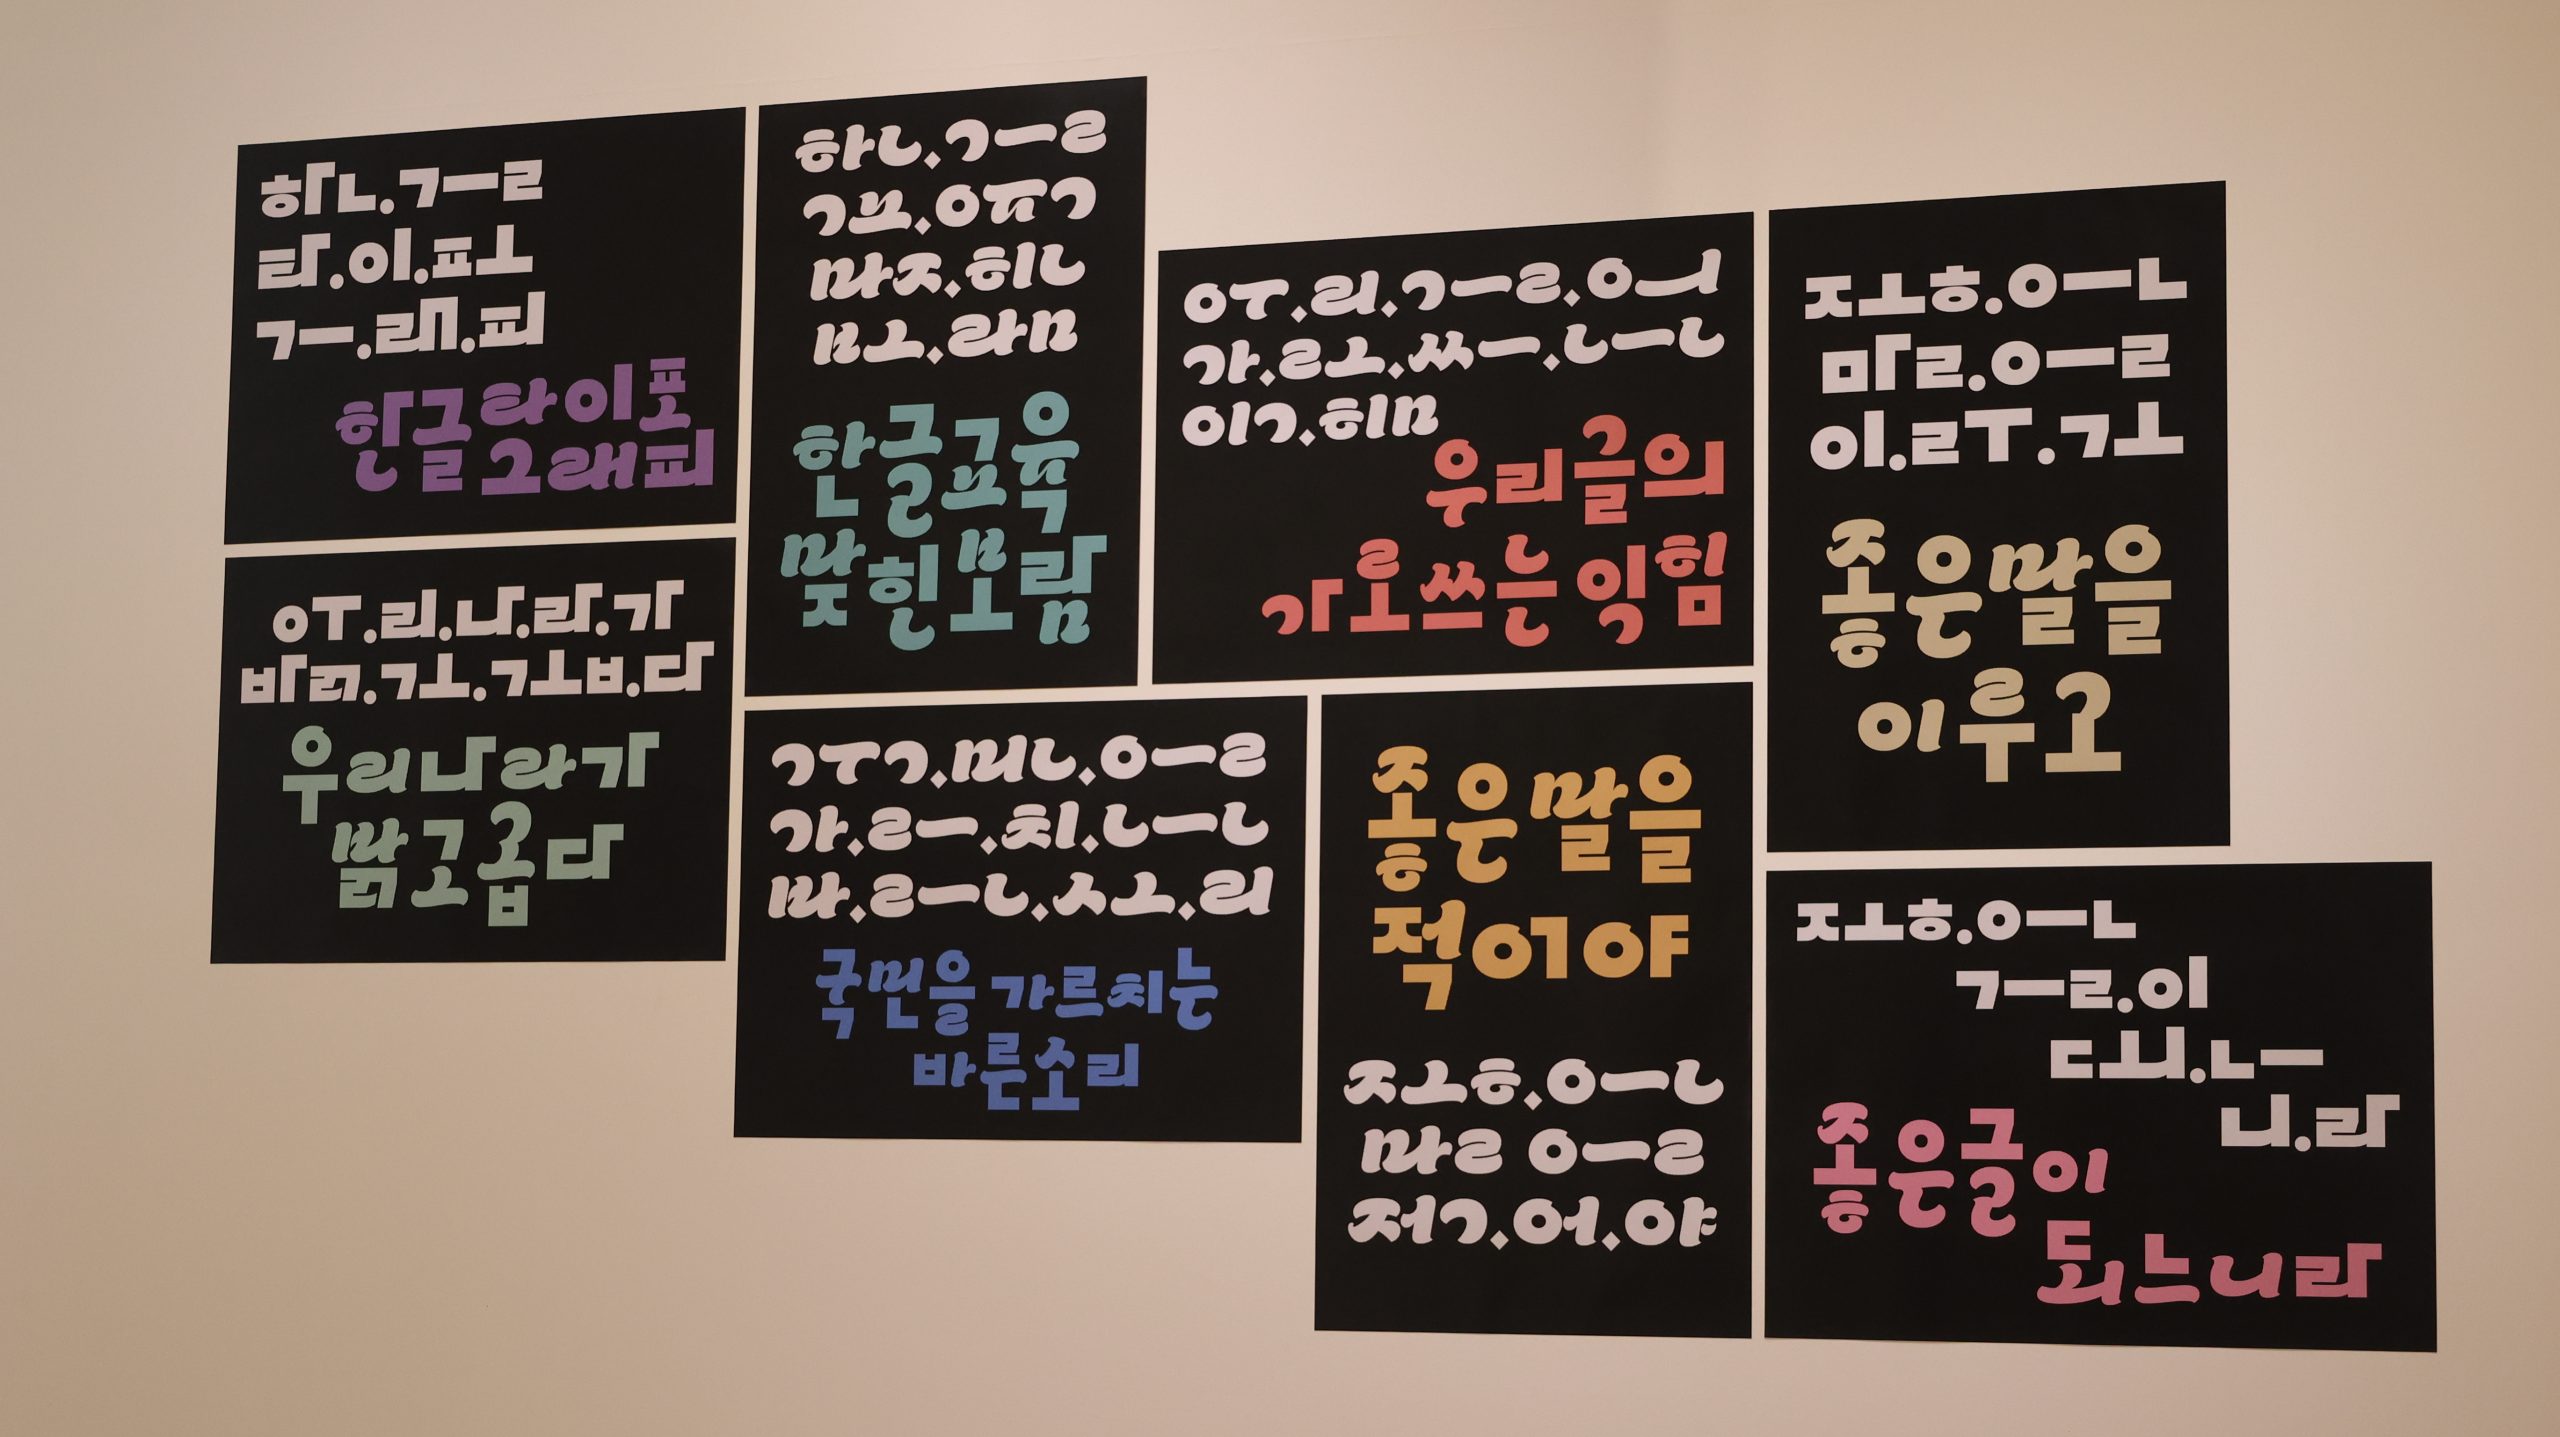 하ㄴ.ㄱㅡㄹ
타.이.ㅍㅗ
ㄱㅡ.래.피
한글타이포
그래피
하ㄴ.ㄱㅡㄹ
ㄱㅛ.ㅇㅠㄱ
마ㅈ.히ㄴ
ㅂㅗ.라ㅁ
한글교육
맞힌보람
ㅇㅜ.리.ㄱㅡㄹ.ㅇㅢ
가.ㄹㅗ.ㅆㅡ.ㄴㅡㄴ
이ㄱ.히ㅁ
우리글의
가로쓰는익힘
ㅈㅗㅎ.ㅇㅡㄴ
마ㄹ.ㅇㅡㄹ
이.ㄹㅜ.ㄱㅗ
좋은말을
이루고
ㅇㅜ.리.나.라.가
바ㄺ.ㄱㅗ.ㄱㅗㅂ.다
우리나라가
밝고곱다
ㄱㅜㄱ.미ㄴ.ㅇㅡㄹ
가.ㄹㅡ.치.ㄴㅡㄴ
바.ㄹㅡㄴ.ㅅㅗ.리
국민을가르치는
바른소리
좋은말을
적어야
ㅈㅗㅎ.ㅇㅡㄴ
마ㄹ ㅇㅡㄹ
저ㄱ.어.야
ㅈㅗㅎ.ㅇㅡㄴ
ㄱㅡㄹ.이
ㄷㅚ.ㄴㅡ
니.라
좋은글이
되느니라